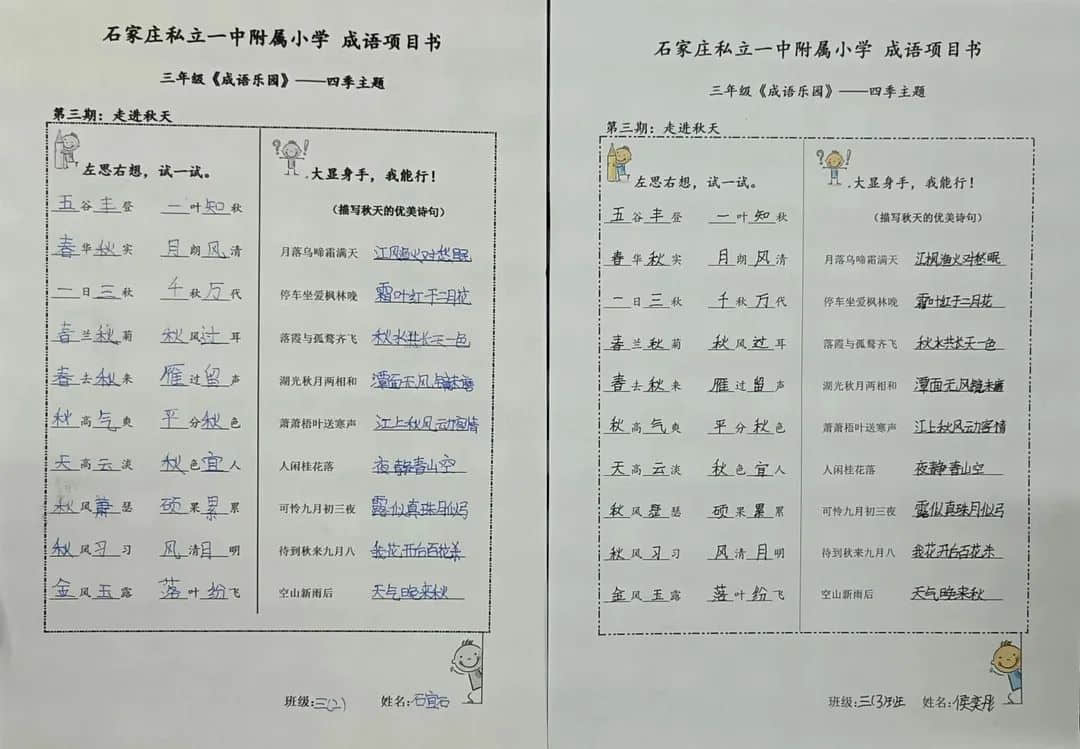 石家庄私立一中附属小学 成语项目书
三年级《成语乐园》——四季主题
第三期：走进秋天
左思右想，试一试。
五谷丰登 一叶知秋
春华秋实 月朗风清
一日三秋 千秋万代
春兰秋菊 秋风过耳
春去秋来 雁过留声
秋高气爽 平分秋色
天高云淡 秋色宜人
秋风萧瑟 硕果累累
秋风习习 风清月明
金风玉露 落叶纷飞
?!
大显身手，我能行！
（描写秋天的优美诗句）
月落乌啼霜满天 江风渔火对愁眠
停车坐爱枫林晚 霜叶红于二月花
落霞与孤鹜齐飞 秋水共长天一色
湖光秋月两相和 潭面无风镜未磨
萧萧梧叶送寒声 江上秋风动客情
人闲桂花落 夜静春山空
可怜九月初三夜 露似真珠月似弓
待到秋来九月八 我花开台百花杀
空山新雨后 天气晚来秋
班级:三(2) 姓名:石宜石
石家庄私立一中附属小学 成语项目书
三年级《成语乐园》——四季主题
第三期：走进秋天
左思右想，试一试。
五谷丰登 一叶知秋
春华秋实 月朗风清
一日三秋 千秋万代
春兰秋菊 秋风过耳
春去秋来 雁过留声
秋高气爽 平分秋色
天高云淡 秋色宜人
秋风瑟 硕果累累
秋风习习 风清月明
金风玉露 落叶纷飞
?!
大显身手，我能行！
（描写秋天的优美诗句）
月落乌啼霜满天 江枫渔火对愁眠
停车坐爱枫林晚 霜叶红于二月花
落霞与孤鹜齐飞 秋水共长天一色
湖光秋月两相和 潭面无风镜未磨
萧萧梧叶送寒声 江上秋风动客情
人闲桂花落 夜静春山空
可怜九月初三夜 露似真珠月似弓
待到秋来九月八 我花开台百花杀
空山新雨后 天气晚来秋
班级:三(3)班 姓名:侯奕彤